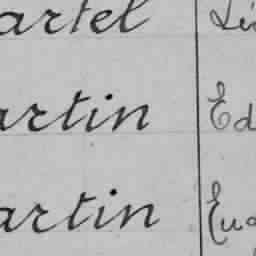 artel Lé
artin Ed
artin Eug